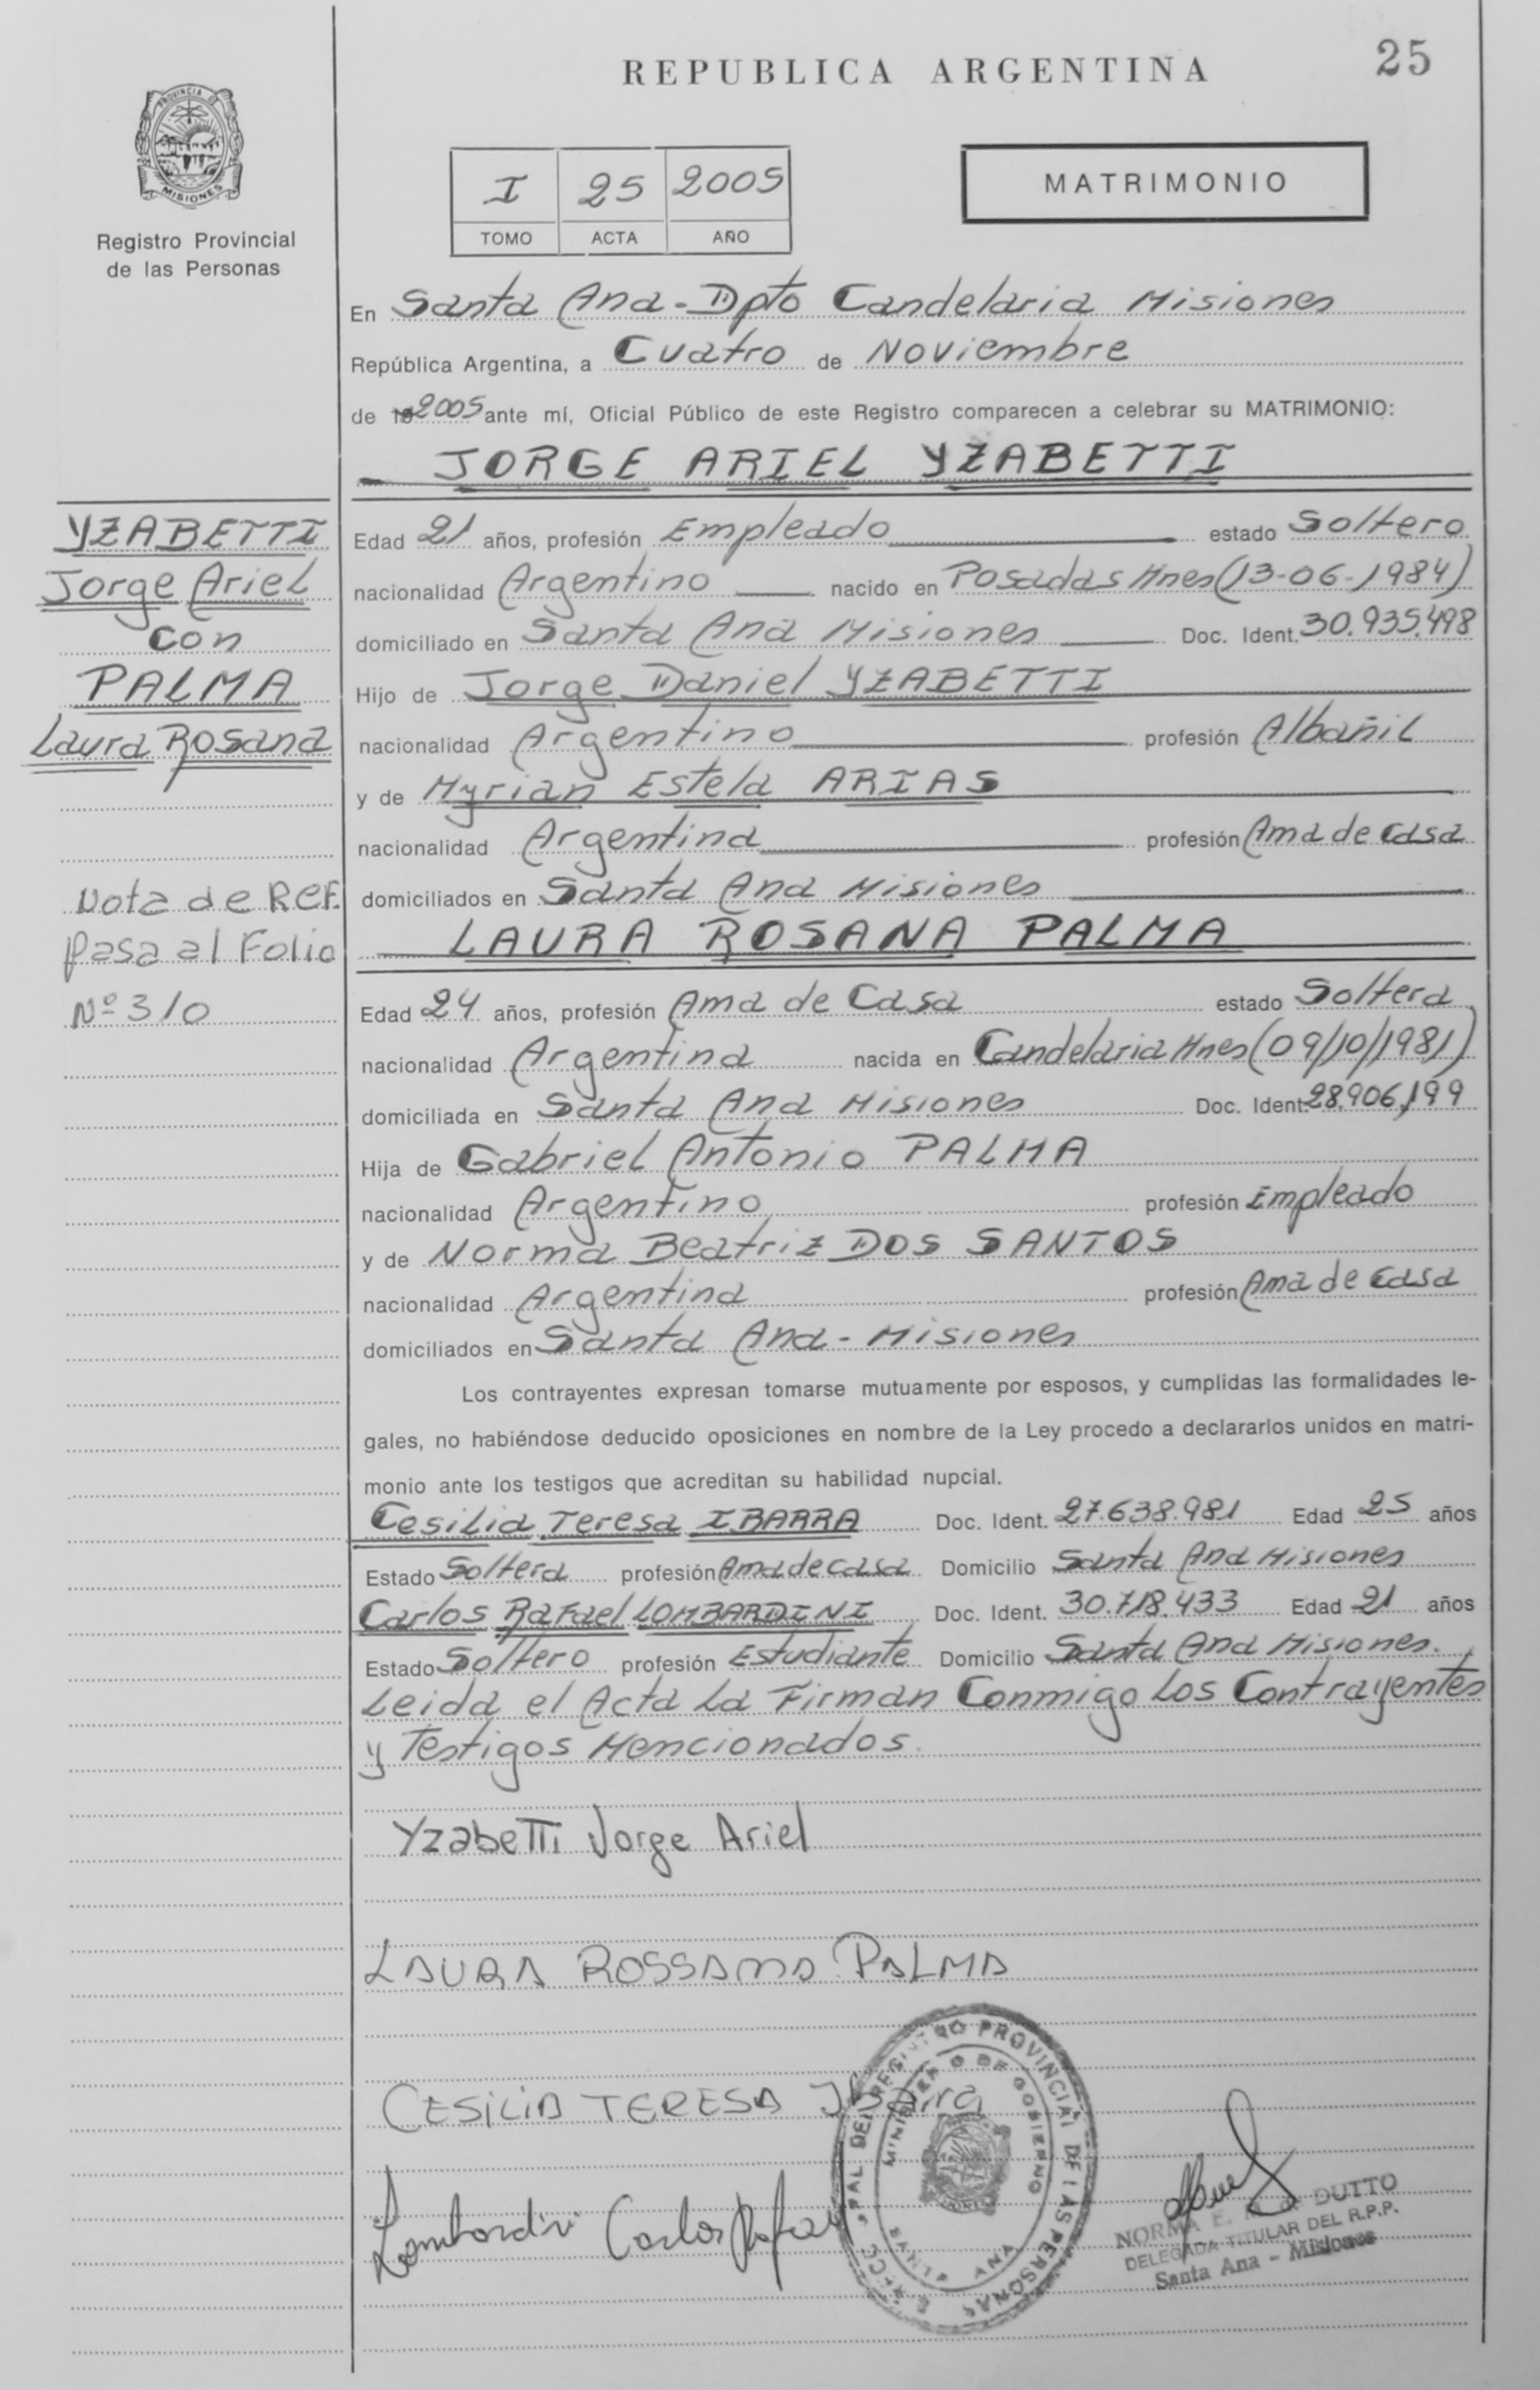 REPUBLICA ARGENTINA
25
PROVINCIA D
MISIONES
Registro Provincial
de las Personas
I 25 2005
TOMO ACTA AÑO
MATRIMONIO
En Santa Ana - Dpto Candelaria Misiones
República Argentina, a Cuatro de Noviembre
de 19 2005 ante mí, Oficial Público de este Registro comparecen a celebrar su MATRIMONIO:
JORGE ARIEL YZABETTI
YZABETTI
Jorge Ariel
con
PALMA
Laura Rosana
Nota de REF.
pasa al Folio
Nº 310
Edad 21 años, profesión Empleado estado Soltero
nacionalidad Argentino nacido en Posadas Mnes (13-06-1984)
domiciliado en Santa Ana Misiones Doc. Ident. 30.935.498
Hijo de Jorge Daniel YZABETTI
nacionalidad Argentino profesión Albañil
y de Myrian Estela ARIAS
nacionalidad Argentina profesión Ama de Casa
domiciliados en Santa Ana Misiones
LAURA ROSANA PALMA
Edad 24 años, profesión Ama de Casa estado Soltera
nacionalidad Argentina nacida en Candelaria Mnes (09/10/1981)
domiciliada en Santa Ana Misiones Doc. Ident. 28.906.199
Hija de Gabriel Antonio PALMA
nacionalidad Argentino profesión Empleado
y de Norma Beatriz DOS SANTOS
nacionalidad Argentina profesión Ama de Casa
domiciliados en Santa Ana - Misiones
Los contrayentes expresan tomarse mutuamente por esposos, y cumplidas las formalidades le-
gales, no habiéndose deducido oposiciones en nombre de la Ley procedo a declararlos unidos en matri-
monio ante los testigos que acreditan su habilidad nupcial.
Cesilia Teresa IBARRA Doc. Ident. 27.638.981 Edad 25 años
Estado Soltera profesión Ama de casa Domicilio Santa Ana Misiones
Carlos Rafael LOMBARDINI Doc. Ident. 30.718.433 Edad 21 años
Estado Soltero profesión Estudiante Domicilio Santa Ana Misiones.
Leida el Acta La Firman Conmigo Los Contrayentes
y Testigos Mencionados.
Yzabetti Jorge Ariel
LAURA ROSSANA PALMA
CESILIA TERESA Ibarra
Lombardini Carlos Rafael
PROVINCIAL DE LAS PERSONAS
O DE GOBIERNO
SANTA ANA
NORMA E. DUTTO
DELEGADA TITULAR DEL R.P.P.
Santa Ana - Misiones